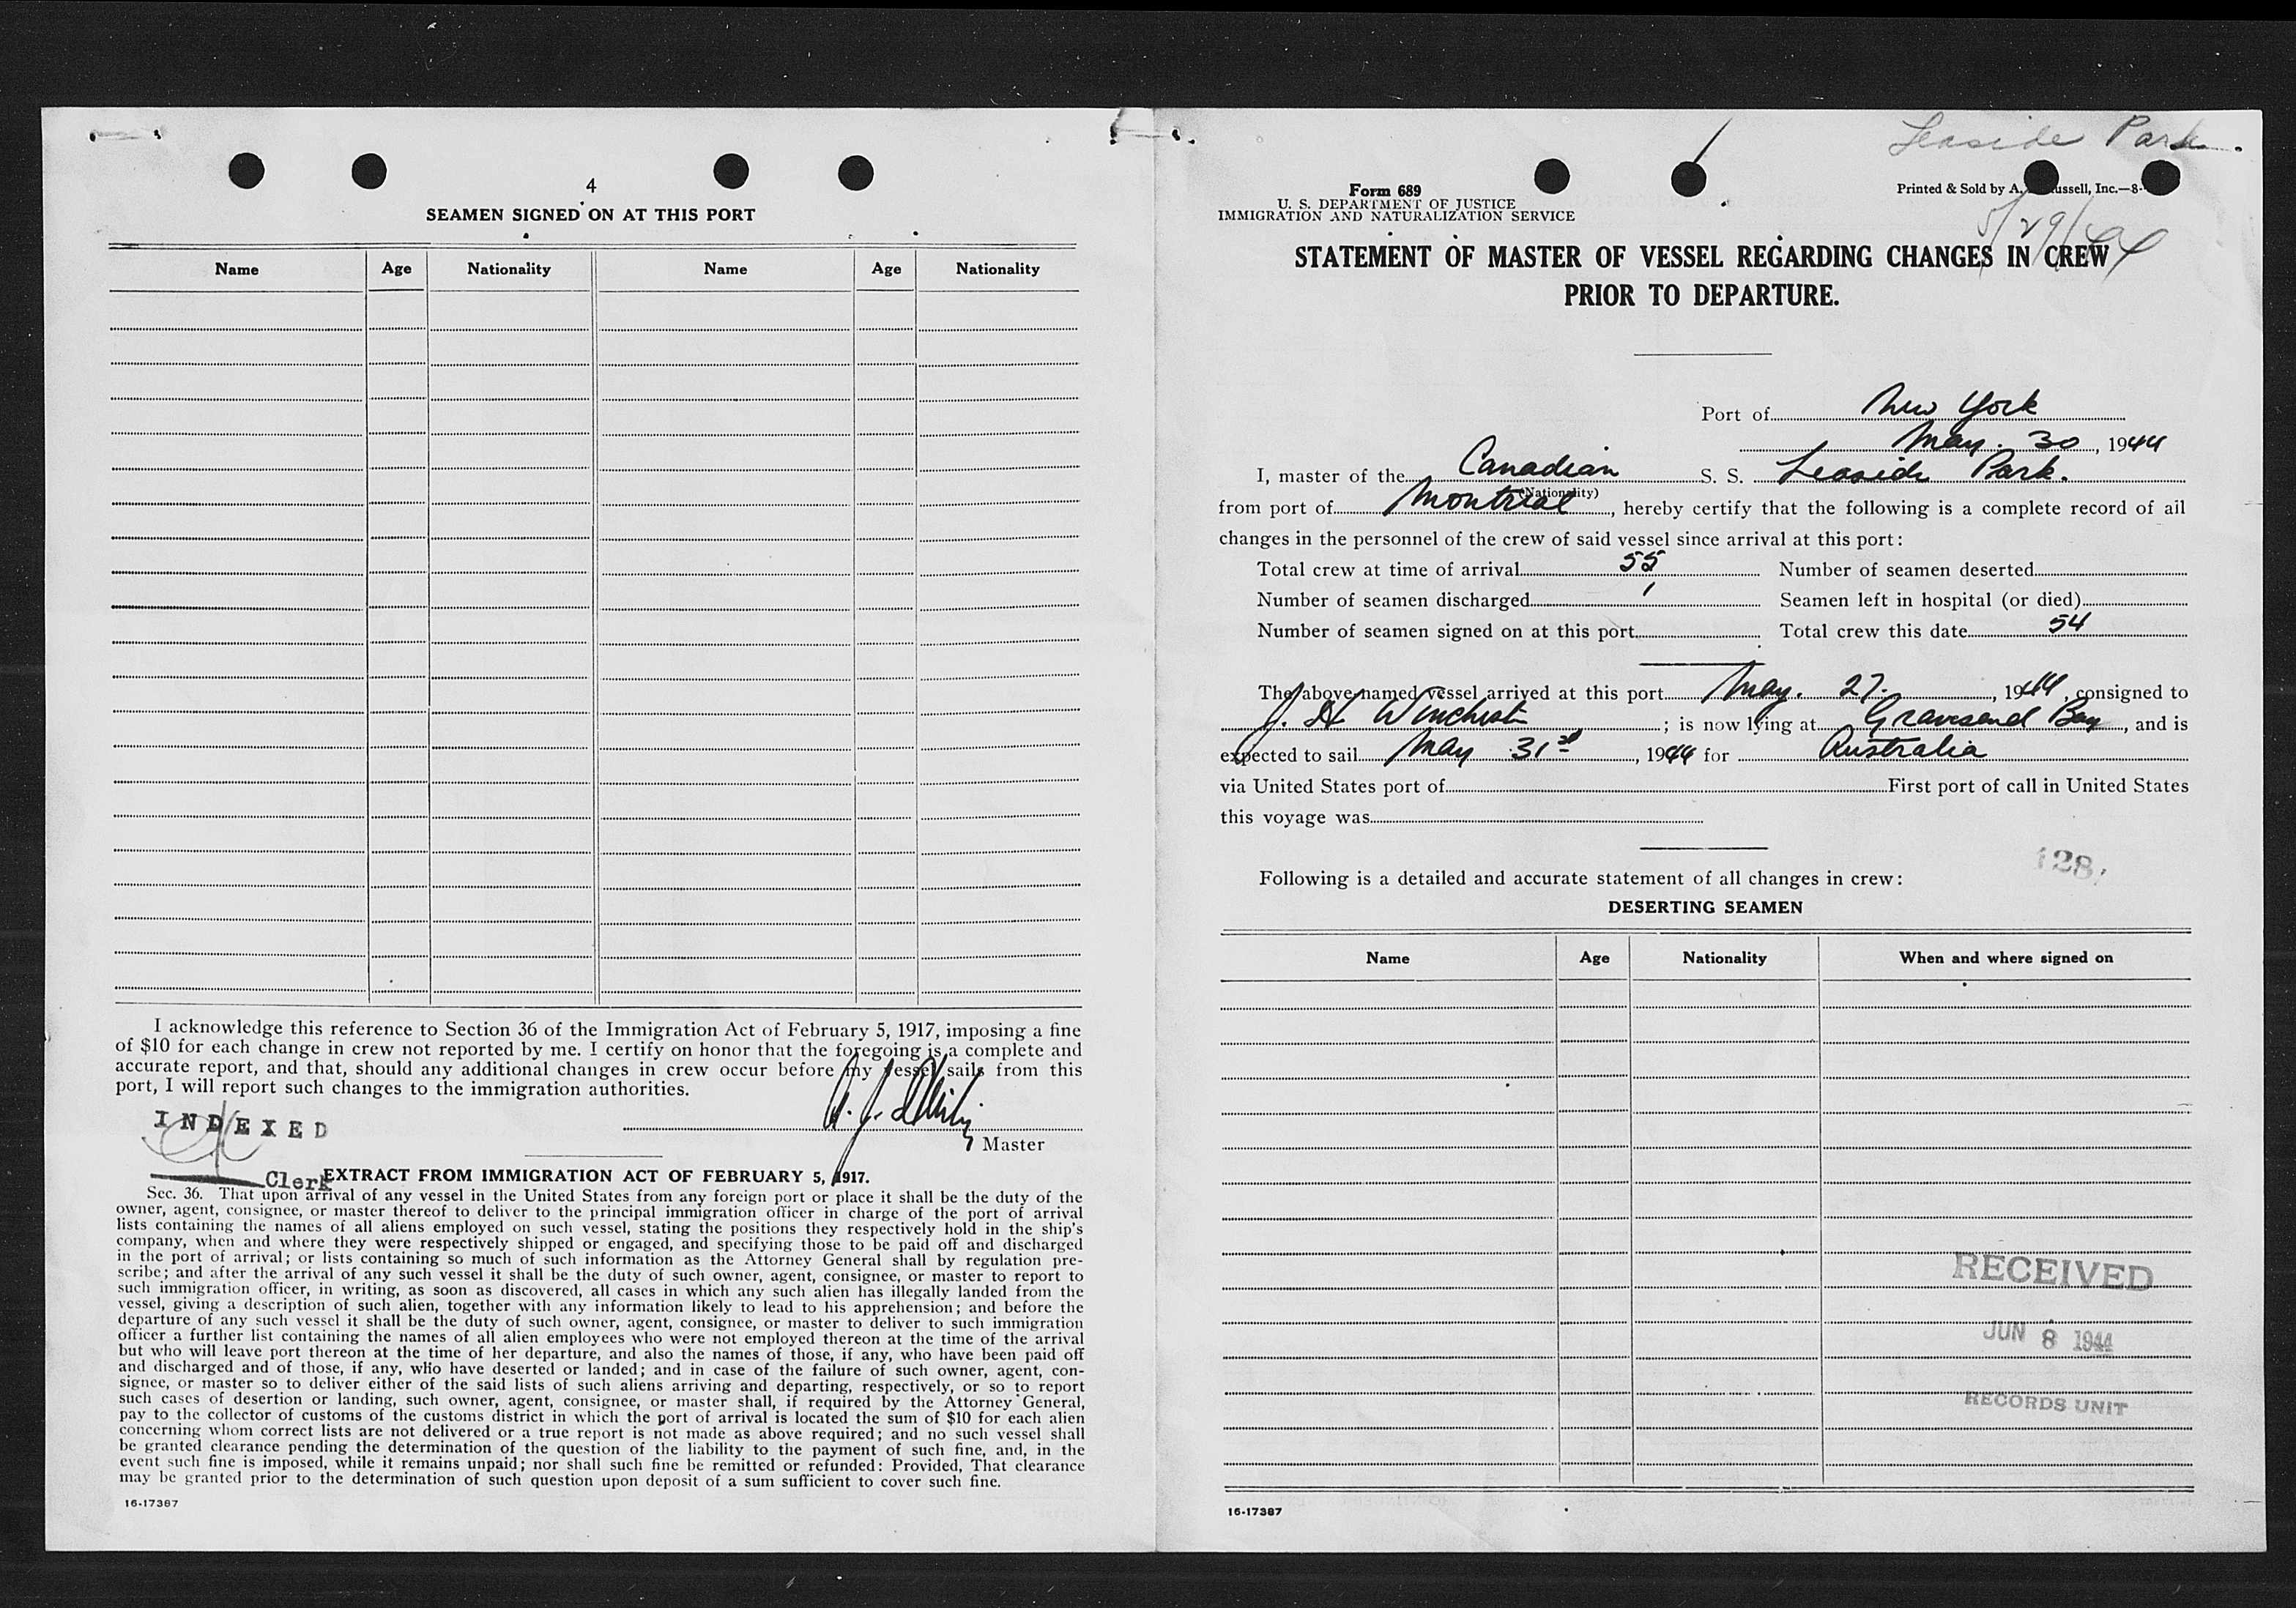 4
SEAMEN SIGNED ON AT THIS PORT
Name Age Nationality Name Age Nationality
I acknowledge this reference to Section 36 of the Immigration Act of February 5, 1917, imposing a fine
of $10 for each change in crew not reported by me. I certify on honor that the foregoing is a complete and
accurate report, and that, should any additional changes in crew occur before my vessel sails from this
port, I will report such changes to the immigration authorities.
INDEXED
Master
Clerk
EXTRACT FROM IMMIGRATION ACT OF FEBRUARY 5, 1917.
Sec. 36. That upon arrival of any vessel in the United States from any foreign port or place it shall be the duty of the
owner, agent, consignee, or master thereof to deliver to the principal immigration officer in charge of the port of arrival
lists containing the names of all aliens employed on such vessel, stating the positions they respectively hold in the ship's
company, when and where they were respectively shipped or engaged, and specifying those to be paid off and discharged
in the port of arrival; or lists containing so much of such information as the Attorney General shall by regulation pre-
scribe; and after the arrival of any such vessel it shall be the duty of such owner, agent, consignee, or master to report to
such immigration officer, in writing, as soon as discovered, all cases in which any such alien has illegally landed from the
vessel, giving a description of such alien, together with any information likely to lead to his apprehension; and before the
departure of any such vessel it shall be the duty of such owner, agent, consignee, or master to deliver to such immigration
officer a further list containing the names of all alien employees who were not employed thereon at the time of the arrival
but who will leave port thereon at the time of her departure, and also the names of those, if any, who have been paid off
and discharged and of those, if any, who have deserted or landed; and in case of the failure of such owner, agent, con-
signee, or master so to deliver either of the said lists of such aliens arriving and departing, respectively, or so to report
such cases of desertion or landing, such owner, agent, consignee, or master shall, if required by the Attorney General,
pay to the collector of customs of the customs district in which the port of arrival is located the sum of $10 for each alien
concerning whom correct lists are not delivered or a true report is not made as above required; and no such vessel shall
be granted clearance pending the determination of the question of the liability to the payment of such fine, and, in the
event such fine is imposed, while it remains unpaid; nor shall such fine be remitted or refunded: Provided, That clearance
may be granted prior to the determination of such question upon deposit of a sum sufficient to cover such fine.
16-17387
Leaside Park.
Form 689
Printed & Sold by A. ussell, Inc.—8-
U. S. DEPARTMENT OF JUSTICE
IMMIGRATION AND NATURALIZATION SERVICE
5/29/44
STATEMENT OF MASTER OF VESSEL REGARDING CHANGES IN CREW
PRIOR TO DEPARTURE.
Port of New York
May. 30, 1944
I, master of the Canadian S. S. Leaside Park.
(Nationality)
from port of Montreal, hereby certify that the following is a complete record of all
changes in the personnel of the crew of said vessel since arrival at this port:
Total crew at time of arrival 55 Number of seamen deserted
Number of seamen discharged 1 Seamen left in hospital (or died)
Number of seamen signed on at this port Total crew this date 54
The above-named vessel arrived at this port May. 27., 1944, consigned to
J. H. Winchester; is now lying at Gravesend Bay, and is
expected to sail May 31st, 1944 for Australia
via United States port of First port of call in United States
this voyage was
128
Following is a detailed and accurate statement of all changes in crew:
DESERTING SEAMEN
Name Age Nationality When and where signed on
RECEIVED
JUN 8 1944
RECORDS UNIT
16-17387